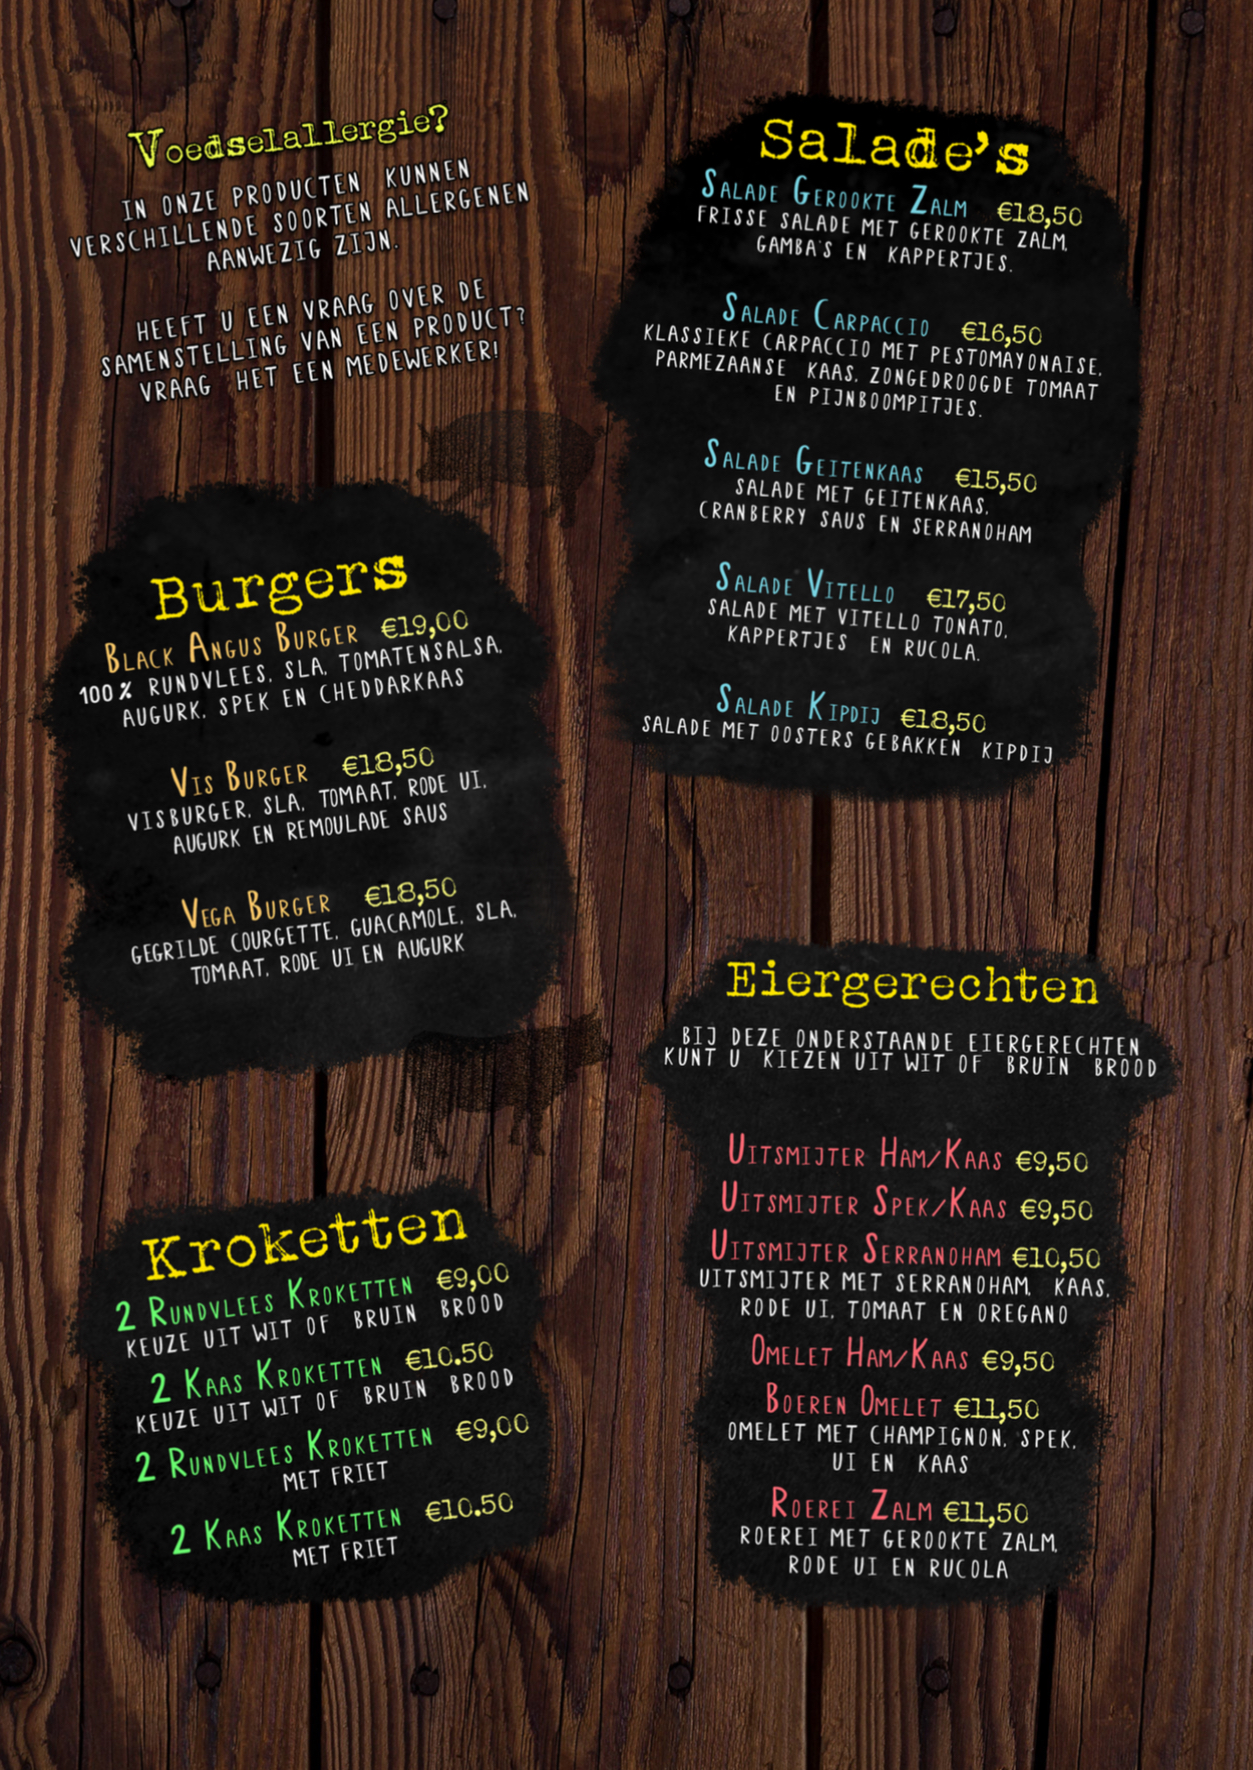 Voedselallergie?
IN ONZE PRODUCTEN KUNNEN
VERSCHILLENDE SOORTEN ALLERGENEN
AANWEZIG ZIJN.
HEEFT U EEN VRAAG OVER DE
SAMENSTELLING VAN EEN PRODUCT?
VRAAG HET EEN MEDEWERKER!
Burgers
BLACK ANGUS BURGER €19,00
100% RUNDVLEES, SLA, TOMATENSALSA,
AUGURK, SPEK EN CHEDDARKAAS
VIS BURGER €18,50
VISBURGER, SLA, TOMAAT, RODE UI,
AUGURK EN REMOULADE SAUS
VEGA BURGER €18,50
GEGRILDE COURGETTE, GUACAMOLE, SLA,
TOMAAT, RODE UI EN AUGURK
Kroketten
2 RUNDVLEES KROKETTEN €9,00
KEUZE UIT WIT OF BRUIN BROOD
2 KAAS KROKETTEN €10.50
KEUZE UIT WIT OF BRUIN BROOD
2 RUNDVLEES KROKETTEN €9,00
MET FRIET
2 KAAS KROKETTEN €10.50
MET FRIET
Salade's
SALADE GEROOKTE ZALM €18,50
FRISSE SALADE MET GEROOKTE ZALM,
GAMBA'S EN KAPPERTJES.
SALADE CARPACCIO €16,50
KLASSIEKE CARPACCIO MET PESTOMAYONAISE,
PARMEZAANSE KAAS, ZONGEDROOGDE TOMAAT
EN PIJNBOOMPITJES.
SALADE GEITENKAAS €15,50
SALADE MET GEITENKAAS,
CRANBERRY SAUS EN SERRANOHAM
SALADE VITELLO €17,50
SALADE MET VITELLO TONATO,
KAPPERTJES EN RUCOLA.
SALADE KIPDIJ €18,50
SALADE MET OOSTERS GEBAKKEN KIPDIJ
Eiergerechten
BIJ DEZE ONDERSTAANDE EIERGERECHTEN
KUNT U KIEZEN UIT WIT OF BRUIN BROOD
UITSMIJTER HAM/KAAS €9,50
UITSMIJTER SPEK/KAAS €9,50
UITSMIJTER SERRANOHAM €10,50
UITSMIJTER MET SERRANOHAM, KAAS,
RODE UI, TOMAAT EN OREGANO
OMELET HAM/KAAS €9,50
BOEREN OMELET €11,50
OMELET MET CHAMPIGNON, SPEK,
UI EN KAAS
ROEREI ZALM €11,50
ROEREI MET GEROOKTE ZALM,
RODE UI EN RUCOLA